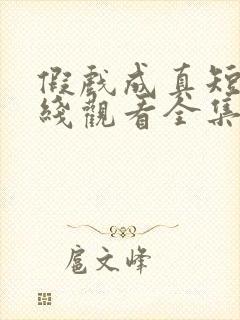 假戲成真短
綫觀看全集
扈文峰